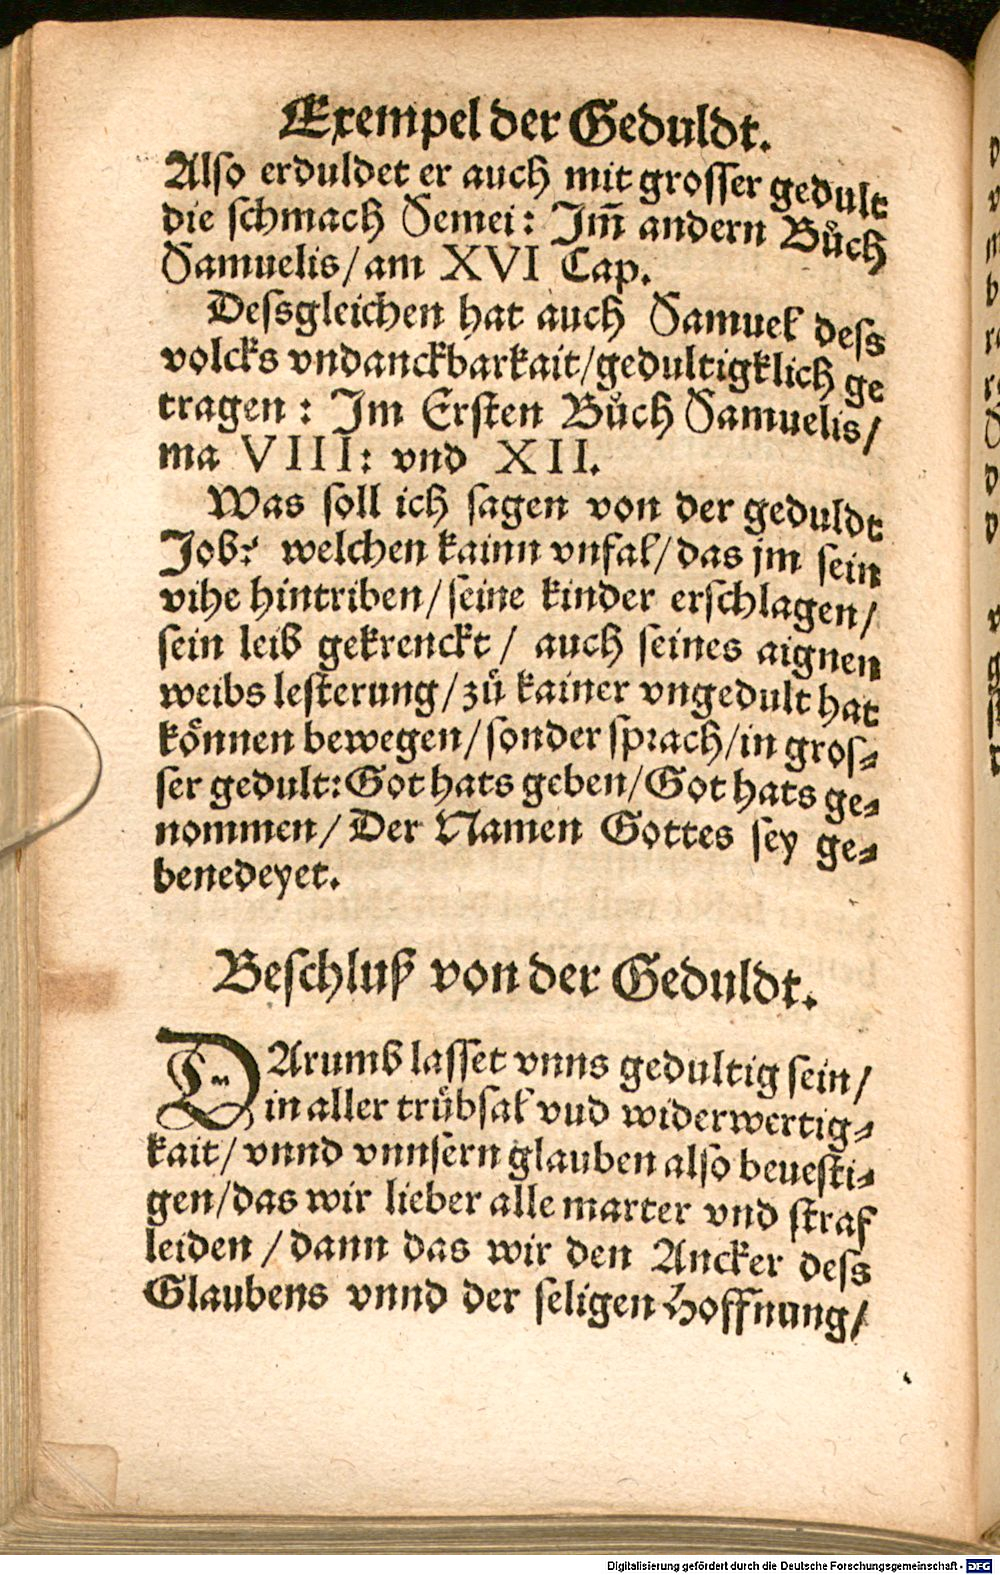 Exempel der Geduldt.
Also erduldet er auch mit grosser gedult
die schmach Semei: Im̃ andern Bůch
Samuelis/ am XVI Cap.
Dessgleichen hat auch Samuel dess
volcks vndanckbarkait/gedultigklich ge
tragen : Im Ersten Bůch Samuelis/
ma VIII: vnd XII.
Was soll ich sagen von der geduldt
Job? welchen kainn vnfal/das jm sein
vihe hintriben/seine kinder erschlagen/
sein leib gekrenckt/ auch seines aignen
weibs lesterung/zů kainer vngedult hat
können bewegen/sonder sprach/in gros-
ser gedult:Got hats geben/Got hats ge-
nommen/ Der Namen Gottes sey ge-
benedeyet.
Beschluß von der Geduldt.
DArumb lasset vnns gedultig sein/
in aller trübsal vud widerwertig-
kait/ vnnd vnnsern glauben also beuesti-
gen/das wir lieber alle marter vnd straf
leiden /dann das wir den Ancker dess
Glaubens vnnd der seligen Hoffnung/
Digitalisierung gefördert durch die Deutsche Forschungsgemeinschaft - DFG